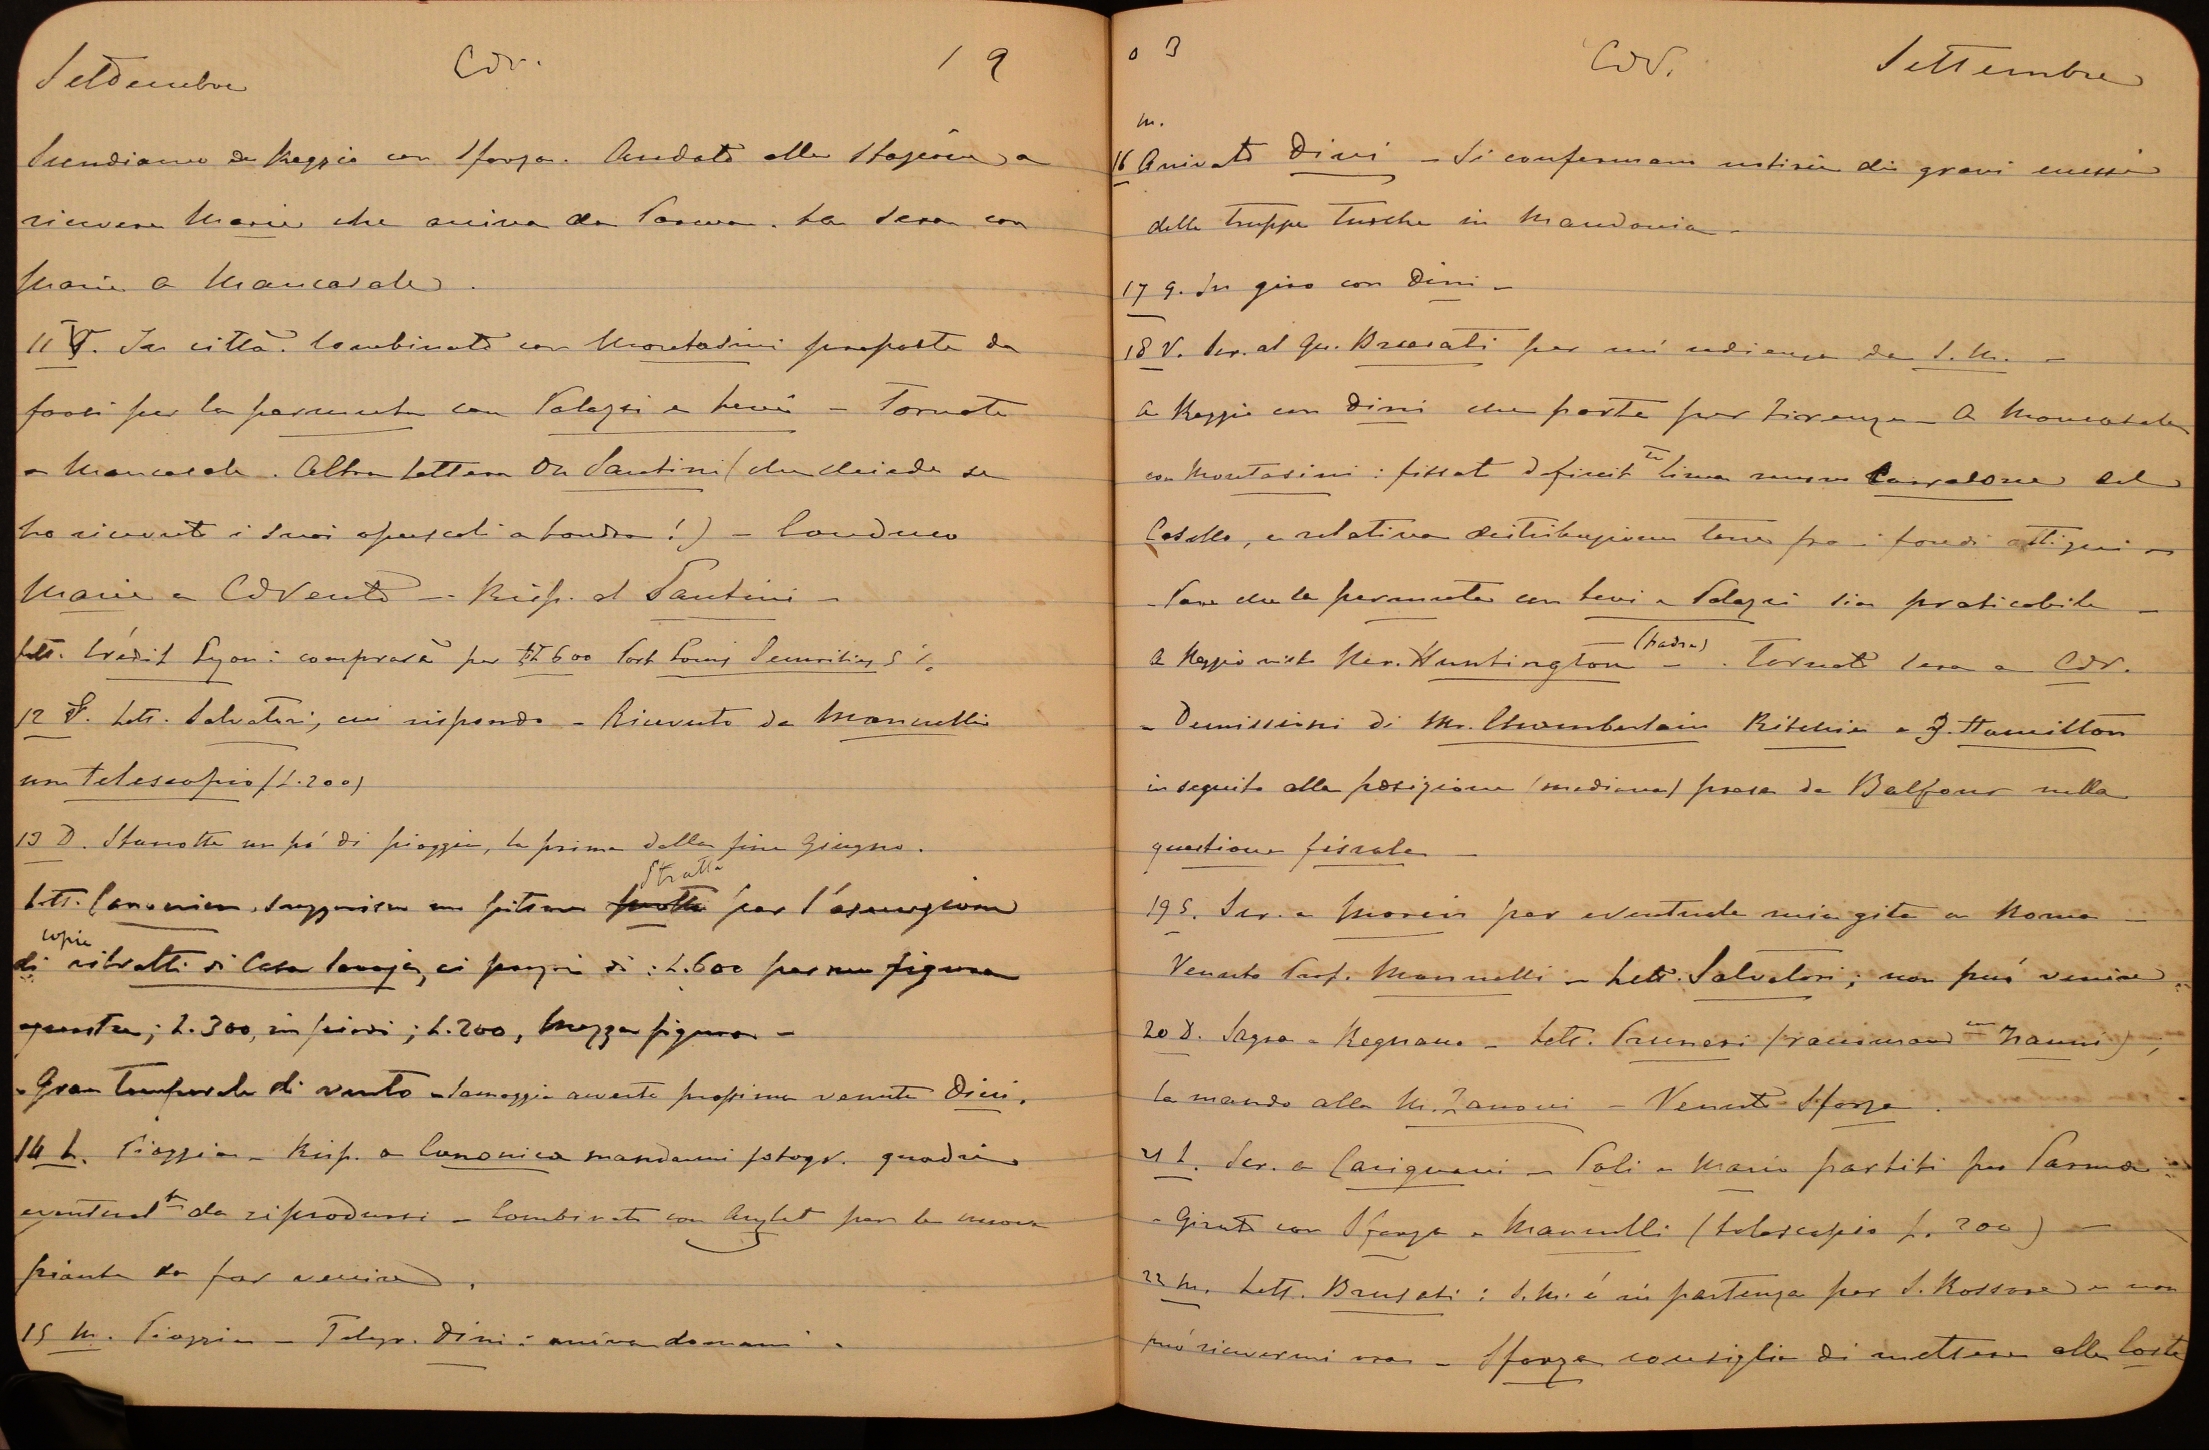 Settembre CdV. 19
Scendiamo da Reggio con Sforza. Andato alla stazione a
ricevere Marie che arriva da Parma. La sera con
Marie a Mancasale.
11 V. In città. Combinato con Montasini proposta da
farsi per la permuta con Palazzi e Levi – Tornato
a Mancasale. Altra lettera Dn Santini (che chiede se
ho ricevuto i suoi opuscoli a Londra!) – Conduco
Marie a CdV e – Risp. al Santini –
Lett. Crédit Lyon: comprerà per 600 Port Louis Securities 5%
12 S. Lett. Salvatori, cui rispondo – Ricevuto da Mannelli
un telescopio (L. 200)
13 D. Stanotte un pó di pioggia, la prima dalla fine Giugno.
Stratta
Lett. Canonica, suggerisce un pittore per l'esecuzione
copie
di ritratti di Casa Savoja, ai prezzi di: L. 600 per una figura
equestre; L. 300, in piedi; L. 200, mezza figura –
– Gran temporale di vento – avverte prossima venuta Dini.
14 L. Pioggia – Risp. a Canonica mandarmi fotogr. quadri
eventualte da riprodursi – Combinato con Anglet per le nuove
piante da far venire.
15 M. Pioggia – Telegr. Dini: arriva domani.
03 CdV. Settembre
M.
16 Arrivato Dini – Si confermano notizie di gravi eccessi
delle truppe Turche in Macedonia –
17 G. In giro con Dini –
18 V. Scr. al Gen. Brusati per mi' udienza da S.M. –
A Reggio con Dini che parte per Firenze – A Mancasale
con Montasini: fissata definitte linea nuovo Cavradone del
Casello, e relativa distribuzione terre fra i fondi attigui –
– Pare che la permuta con Levi e Palazzi sia praticabile –
A Reggio visto Her. Huntington – (padre). Tornato sera a CdV.
– Demissioni di Mr. Chamberlain Ritchie e G. Hamilton
in seguito alla posizione (mediana) presa da Balfour nella
questione fiscale –
19 S. Scr. a Morin per eventuale mia gita a Roma –
Venuto Prof. Mannelli – Lett. Salvatori; non può venire –
20 D. Sagra a Regnano – Lett. Pruneri (raccomand Zanni);
la mando alla M. Zanoni – Venuto Sforza.
21 L. Scr. a Carignani – Poli e Marie partiti per Parma
– Girato con Sforza e Mannelli (telescopio L. 200) –
22 M. Lett. Brusati: S.M. é in partenza per S. Rossore e non
può ricevermi ora – Sforza consiglia di mettere alla Costa